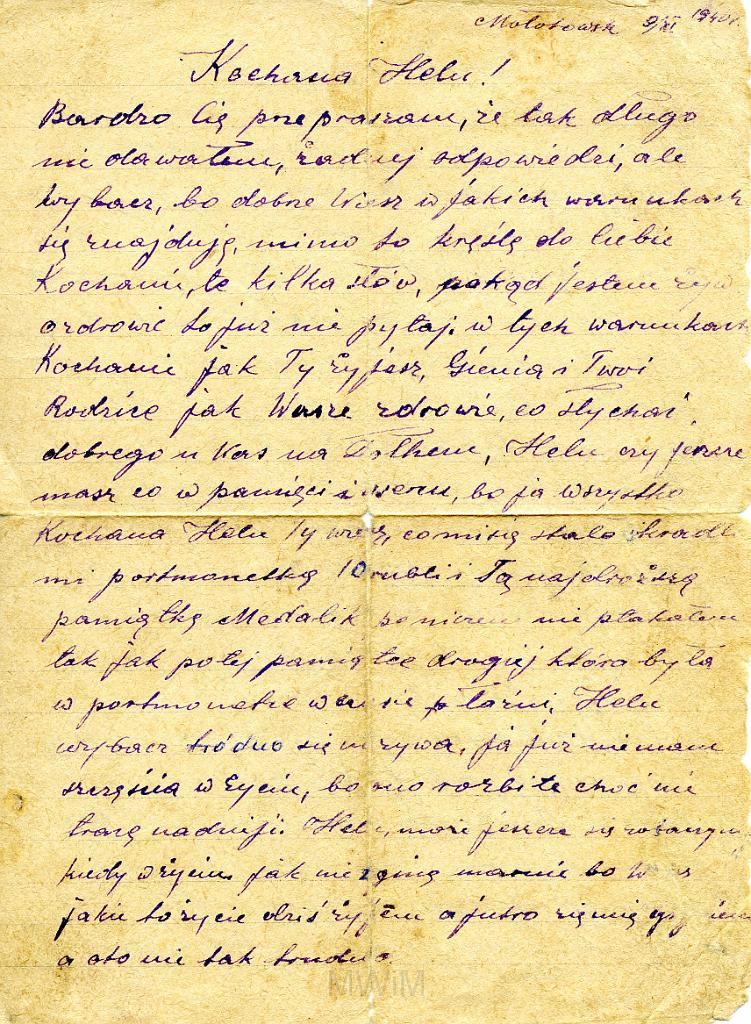 Mołotowsk 9/XI 1940r.
Kochana Helu!
Bardzo Cię przepraszam, że tak długo
nie dawałem, żadnej odpowiedzi, ale
wybacz, bo dobrze Wiesz w jakich warunkach
się znajduję, mimo to kręślę do Ciebie
Kochanie, te kilka słów, pokąd jestem żyw
o zdrowie to już nie pytaj. w tych warunkach
Kochanie jak Ty żyjesz, Gienia i Twoi
Rodzice jak Wasze zdrowie, co słychać
dobrego u Was na Helu czy jeszcze
masz co w pamięci i sercu, bo ja wszystko
Kochana Helu Ty wiesz, co mi się stało skradli
mi portmonetkę 10 rubli i Tą najdroższą
pamiątkę Medalik po niczem nie płakałem
tak jak po tej pamiątce drogiej która była
w portmonetce w łaźni, Helu
wybacz tródno się urywa, ja już nie mam
szczęścia w życiu, bo ono rozbite choć nie
tracę nadzieji. Helu, może jeszcze się zobaczymy
kiedy w życiu. jak nie zginę marnie bo
jakie to życie dziś żyjem a jutro
a oto nie tak trudno
MWiM